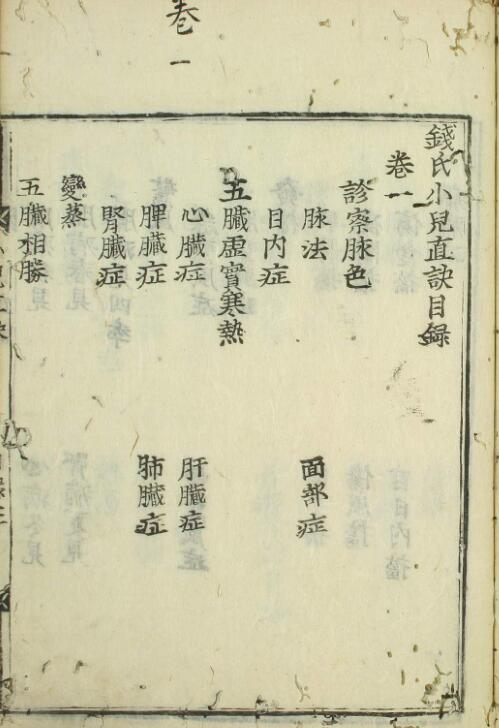 卷一
錢氏小兒直訣目録
卷一
診察脉色
脉法 面部症
目内症
五臟虛實寒熱
心臟症 肝臟症
脾臟症 肺臟症
腎臟症
變蒸
五臟相勝